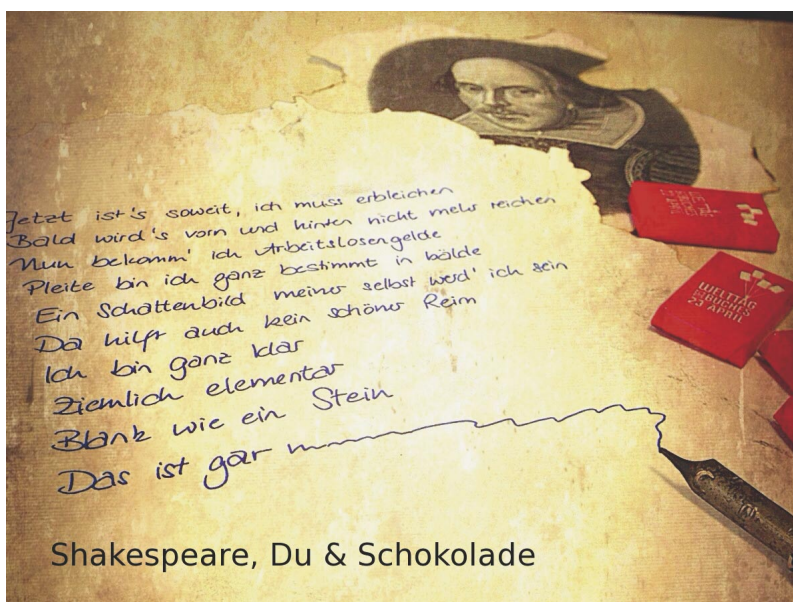 Jetzt ist's soweit, ich muss erbleichen
Bald wird's vorn und hinten nicht mehr reichen
Nun bekomm' ich Arbeitslosengelde
Pleite bin ich ganz bestimmt in bälde
Ein Schattenbild meiner selbst werd' ich sein
Da hilft auch kein schöner Reim
Ich bin ganz klar
Ziemlich elementar
Blank wie ein Stein
Das ist gar
WELTTAG
DES BUCHES
23 APRIL
Shakespeare, Du & Schokolade